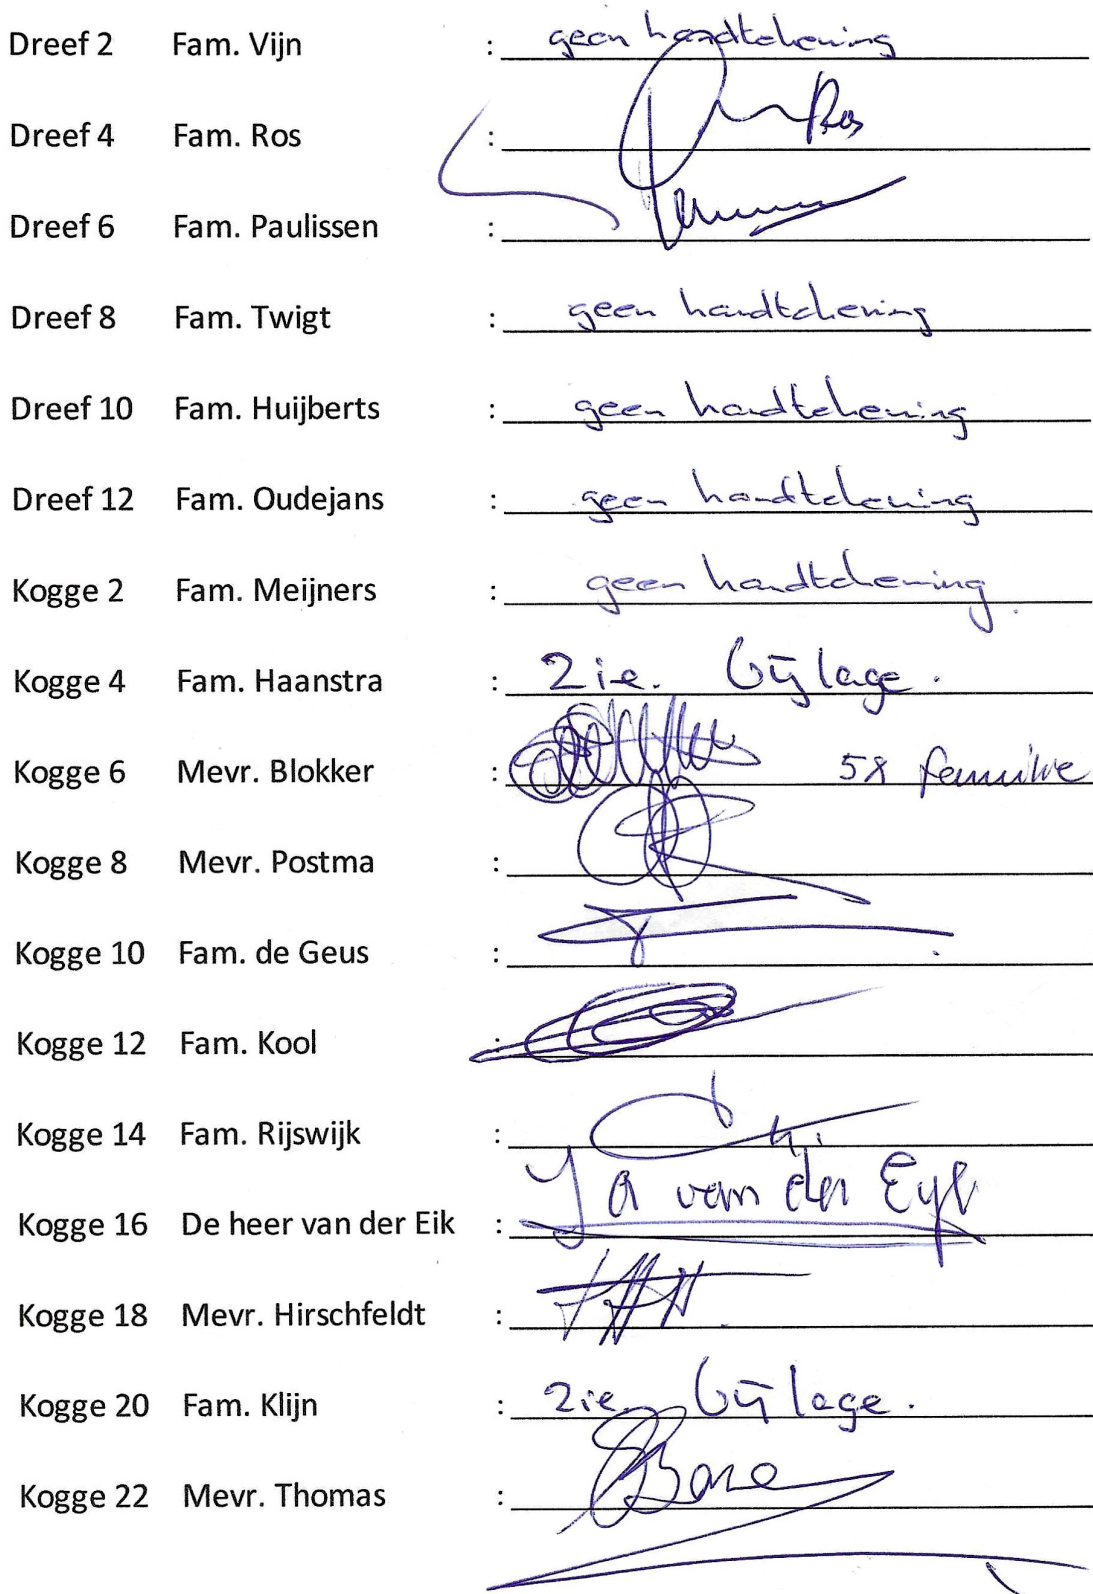 Dreef 2 Fam. Vijn : geen handtekening
Dreef 4 Fam. Ros : Ros
Dreef 6 Fam. Paulissen :
Dreef 8 Fam. Twigt : geen handtekening
Dreef 10 Fam. Huijberts : geen handtekening
Dreef 12 Fam. Oudejans : geen handtekening
Kogge 2 Fam. Meijners : geen handtekening.
Kogge 4 Fam. Haanstra : Zie bijlage.
Kogge 6 Mevr. Blokker : 5x familie
Kogge 8 Mevr. Postma :
Kogge 10 Fam. de Geus :
Kogge 12 Fam. Kool :
Kogge 14 Fam. Rijswijk :
Kogge 16 De heer van der Eik : van der Eyk
Kogge 18 Mevr. Hirschfeldt :
Kogge 20 Fam. Klijn : zie bijlage.
Kogge 22 Mevr. Thomas :